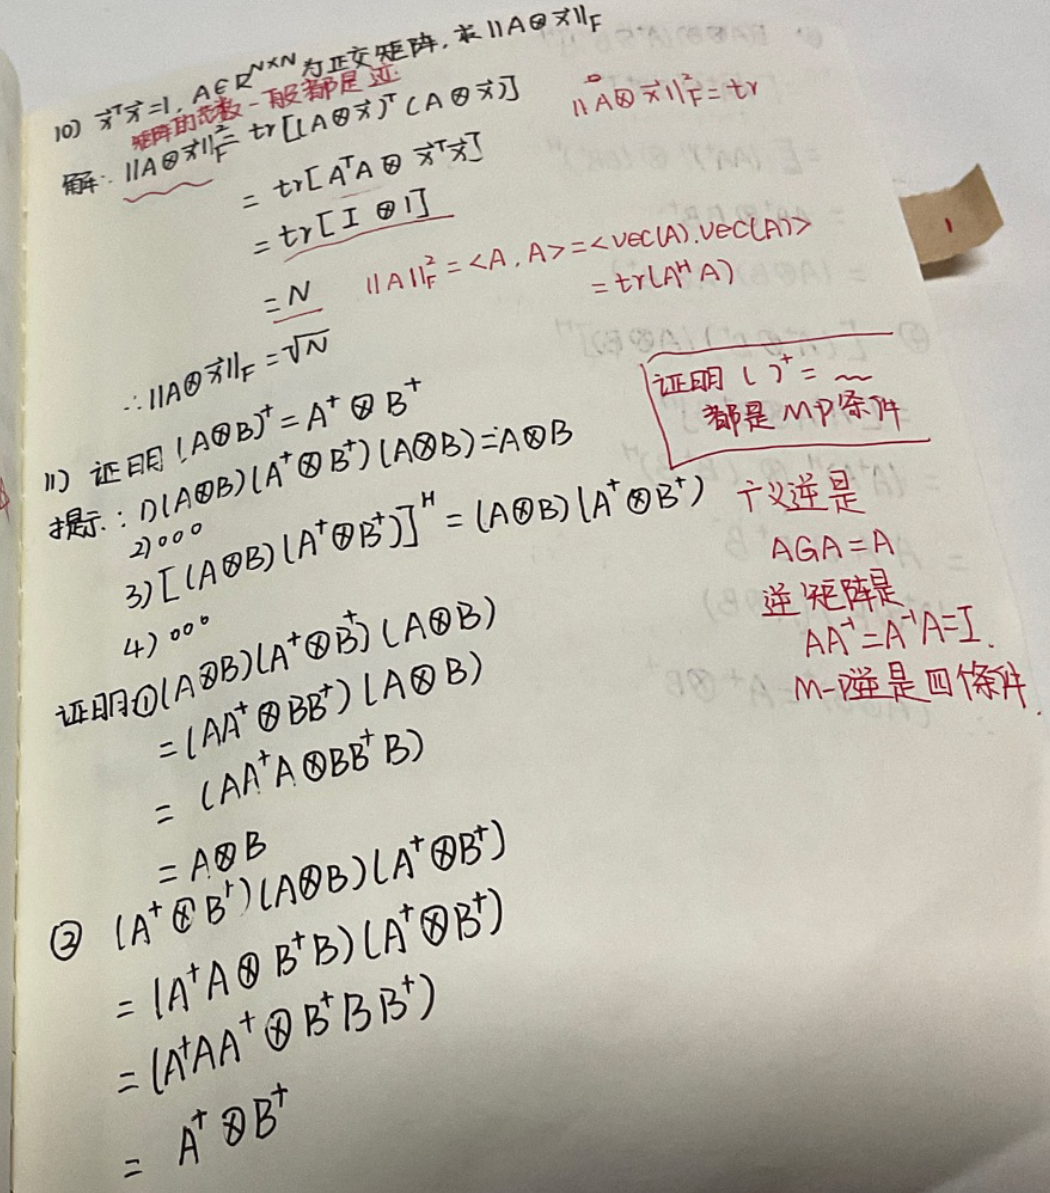 10) x⃗ᵀx⃗=1, A∈R^{N×N} 为正交矩阵,求||A⊗x⃗||_F
矩阵的范数一般都是迹.
解: ||A⊗x⃗||²_F = tr[(A⊗x⃗)ᵀ(A⊗x⃗)]
||A⊗x⃗||²_F = tr
= tr[AᵀA⊗x⃗ᵀx⃗]
= tr[I⊗1]
= N
||A||²_F = <A,A> = <vec(A),vec(A)>
= tr(AᴴA)
∴||A⊗x⃗||_F = √N
证明( )⁺ = ~~
都是MP条件
11) 证明(A⊗B)⁺ = A⁺⊗B⁺
提示: 1)(A⊗B)(A⁺⊗B⁺)(A⊗B)=A⊗B
2)。。。
3)[(A⊗B)(A⁺⊗B⁺)]ᴴ = (A⊗B)(A⁺⊗B⁺)
4)。。。
广义逆是
AGA=A
逆矩阵是
AA⁻¹=A⁻¹A=I.
M-P逆是四条件
证明①(A⊗B)(A⁺⊗B⁺)(A⊗B)
= (AA⁺⊗BB⁺)(A⊗B)
= (AA⁺A⊗BB⁺B)
= A⊗B
② (A⁺⊗B⁺)(A⊗B)(A⁺⊗B⁺)
= (A⁺A⊗B⁺B)(A⁺⊗B⁺)
= (A⁺AA⁺⊗B⁺BB⁺)
= A⁺⊗B⁺
1